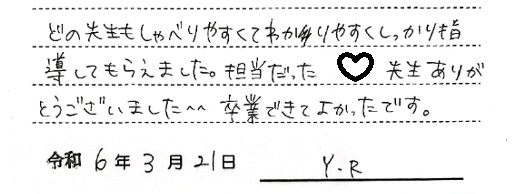 どの先生もしゃべりやすくてわかりやすくしっかり指
導してもらえました。担当だった ♡ 先生ありが
とうございました^^ 卒業できてよかったです。
令和 6 年 3 月 21 日 Y.R